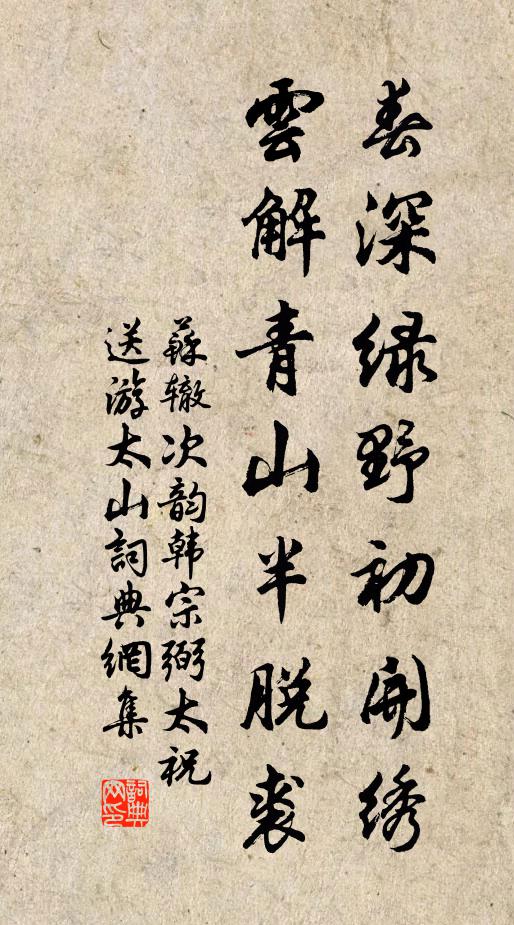 春深绿野初开绣
雲解青山半脱裘
蘇辙次韵韩宗弼太祝
送游太山詞典網集
詞典
网印